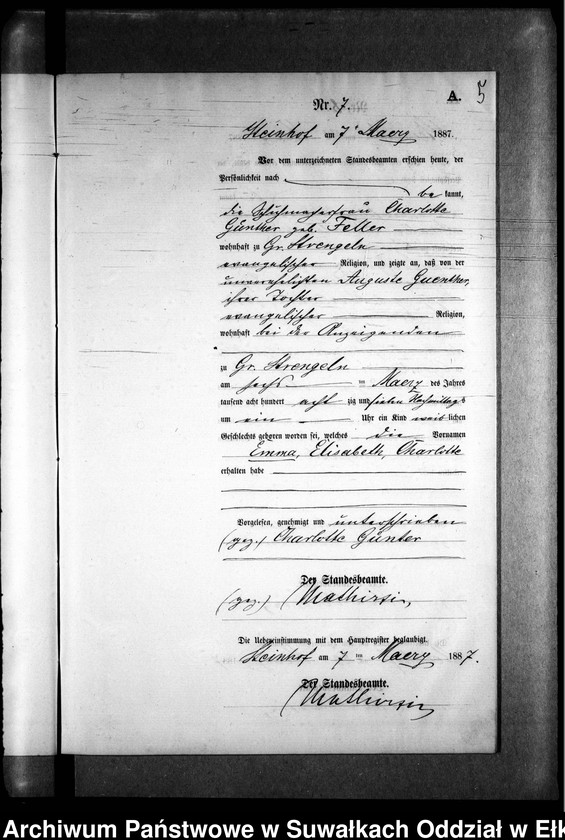 A. 5
Nr. 7.
Steinhof am 7t Maerz 1887.
Vor dem unterzeichneten Standesbeamten erschien heute, der
Persönlichkeit nach
be kannt,
die Schuhmacherfrau Charlotte
Günther geb. Feller
wohnhaft zu Gr. Strengeln
evangelischer Religion, und zeigte an, daß von der
unverehelichten Auguste Guenther,
ihrer Tochter
evangelischer Religion,
wohnhaft bei der Anzeigenden
zu Gr. Strengeln
am sechs ten Maerz des Jahres
tausend acht hundert acht zig und sieben Nachmittags
um ein Uhr ein Kind weib lichen
Geschlechts geboren worden sei, welches die Vornamen
Emma, Elisabeth, Charlotte
erhalten habe
Vorgelesen, genehmigt und unterschrieben
(gez.) Charlotte Günter
Der Standesbeamte.
(gez.)
Die Uebereinstimmung mit dem Hauptregister beglaubigt.
Steinhof am 7 ten Maerz 1887.
Der Standesbeamte.
Archiwum Państwowe w Suwałkach Oddział w Ełk